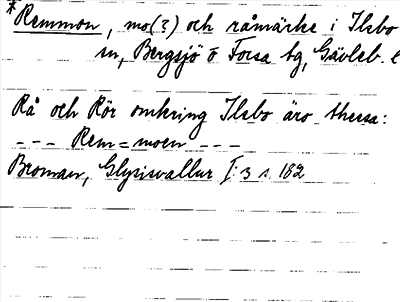 *Remmon, mo(?) och råmärke i Ilsbo
sn, Bergsjö o Forsa tg, Gävleb. l
Rå och Rör omkring Ilsbo äro thessa:
--- Rem=moen ---
Broman, Glysisvallur I:3 s. 182